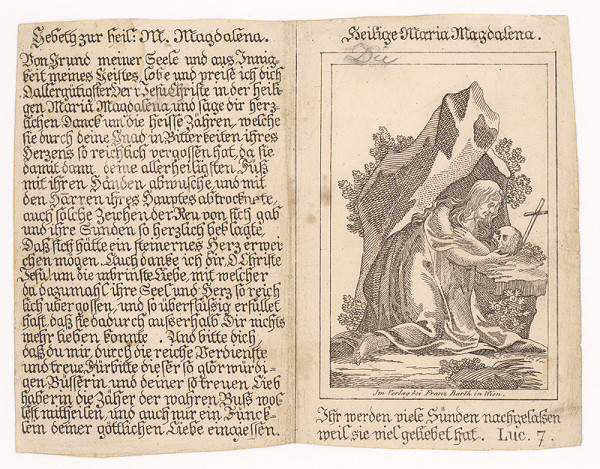 Gebeth zur heil: M. Magdalena.
Von Grund meiner Seele und aus Innig-
keit meines Geistes, lobe und preise ich dich
O allergütigster Herr Jesu Christe in der heili-
gen Maria Magdalena, und sage dir herz-
lichen Danck um die heisse Zähren, welche
sie durch deine Gnad in Bitterkeiten ihres
Herzens so reichlich vergossen hat, da sie
damit dann deine allerheiligsten Füß
mit ihren Händen abwusche, und mit
den Härren ihres Hauptes abtrocknete,
auch solche Zeichen der Reu von sich gab
und ihre Sünden so herzlich beklagte
Daß sich hätte ein steinernes Herz erwei
chen mögen. Auch danke ich dir, O Christe
Jesu! um die inbrinste Liebe, mit welcher
du dazumahl ihre Seel und Herz so reich
lich übergossen, und so überflüssig erfüllet
hast, daß sie dadurch ausserhalb Dir nichts
mehr lieben konnte. Und bitte dich,
daß du mir durch die reiche Verdienste
und treue Fürbitte dieser so glorwürdi-
gen Büsserin und deiner so treuen Lieb
haberin die Zäher der wahren Buß wol-
lest mitheilen, und auch mir ein Fünck-
lein deiner göttlichen Liebe eingiessen.
Heilige Maria Magdalena.
Die
Im Verlag bei Franz Barth in Wien.
Ihr werden viele Sünden nachgelassen
weil sie viel geliebet hat. Luc. 7.